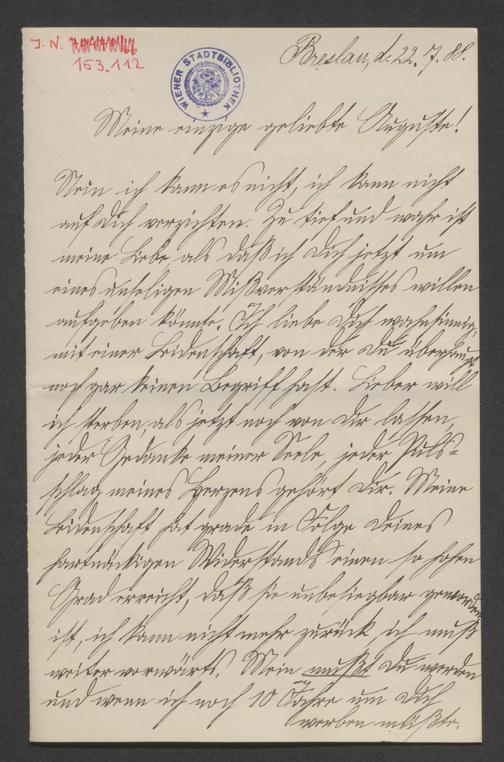 J. N.
153.112
WIENER STADTBIBLIOTHEK
Breslau, d. 22. 7. 88.
Meine einzige geliebte Auguste!
Nein ich kann es nicht, ich kann nicht
auf Dich verzichten. Zu tief und wahr ist
meine Liebe als daß ich Dich jetzt um
eines unseligen Mißverständnisses willen
aufgeben könnte! Ich liebe Dich wahnsinnig,
mit einer Leidenschaft, von der Du überhaupt
noch gar keinen Begriff hast. Lieber will
ich sterben, als jetzt noch von Dir lassen,
jeder Gedanke meiner Seele, jeder Puls-
schlag meines Herzens gehört Dir. Meine
Leidenschaft hat grade in Folge Deines
hartnäckigen Widerstands einen so hohen
Grad erreicht, daß sie unbesiegbar geworden
ist, ich kann nicht mehr zurück ich muß
weiter vorwärts. Mein mußt Du werden
und wenn ich noch 10 Jahre um Dich
werben müßte.